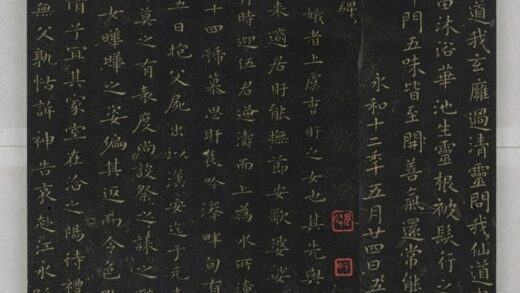 道我玄廱過清靈問我仙道
沐浴華池生靈根被髮行之
門五味皆至開善氣還常能
永和十二年五月廿四日五
碑
娥者上虞曹盱之女也其先與
來適居盱能撫節安歌婆娑
時迎伍君逆濤而上為水所淹
十四號慕思盱哀吟澤畔旬有
五日抱父屍出以漢安迄于元
莫之有表度尚設祭之誄之
女曄曄之姿偏其返而令色
倩子宜其家室在洽之陽待禮
無父孰怙訴神告哀赴江永